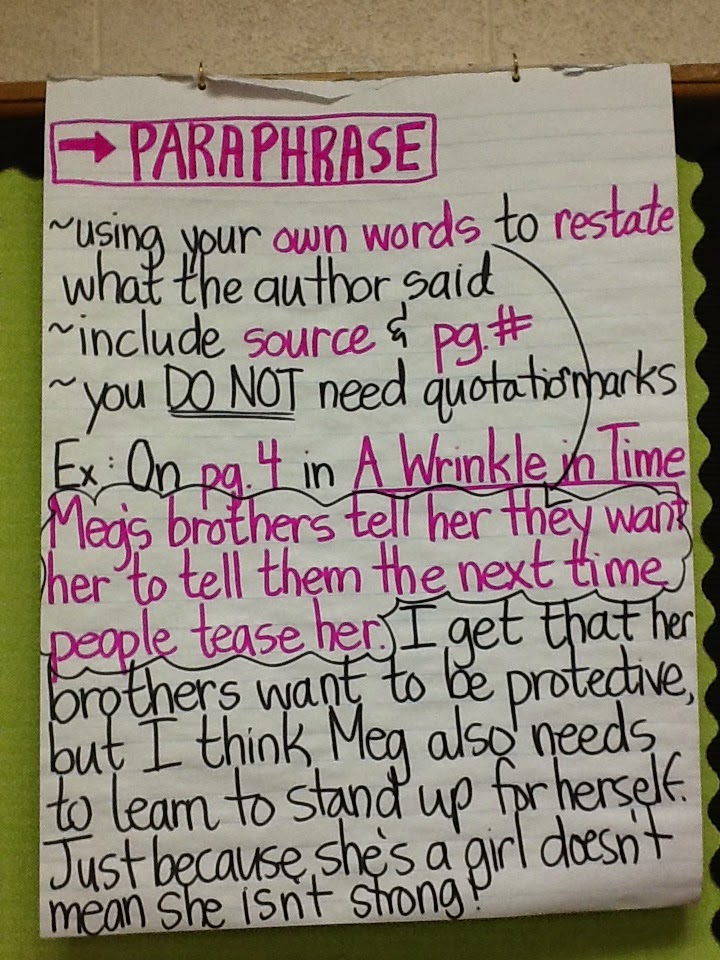 → PARAPHRASE
~using your own words to restate
what the author said
~include source & pg.#
~you DO NOT need quotation marks
Ex: On pg. 4 in A Wrinkle in Time
Meg's brothers tell her they want
her to tell them the next time
people tease her. I get that her
brothers want to be protective,
but I think Meg also needs
to learn to stand up for herself.
Just because she's a girl doesn't
mean she isn't strong!